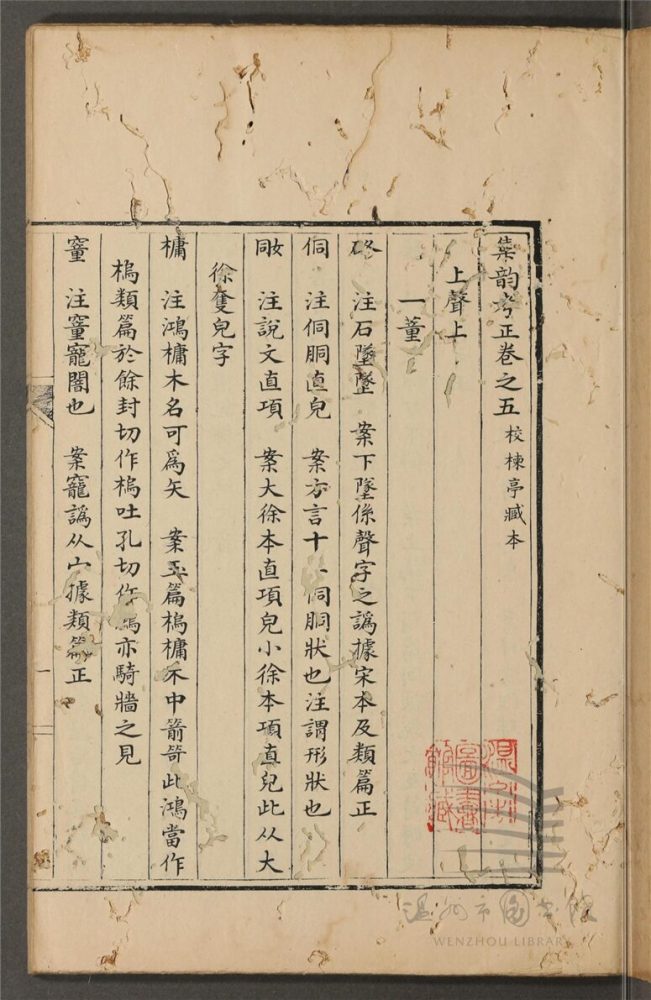 集韵考正卷之五 校楝亭臧本
上聲上
一董
硌 注石墜墜 案下墜係聲字之譌據宋本及類篇正
侗 注侗胴直皃 案方言十 侗胴狀也注謂形狀也
注說文直項 案大徐本直項皃小徐本項直皃此从大
徐隻皃字
槦 注鴻槦木名可爲矢 案玉篇槝槦木中箭笴此鴻當作
槝類篇於餘封切作槝吐孔切作鴻亦騎牆之見
注竉闇也 案竉譌从宀據類篇正
一
溫州市圖書館
WENZHOU LIBRARY